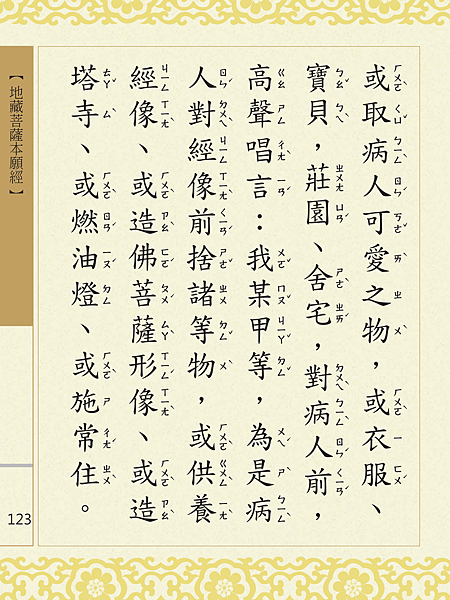 或取病人可愛之物，或衣服、
寶貝，莊園、舍宅，對病人前，
高聲唱言：我某甲等，為是病
人對經像前捨諸等物，或供養
經像、或造佛菩薩形像、或造
塔寺、或燃油燈、或施常住。
【地藏菩薩本願經】
123